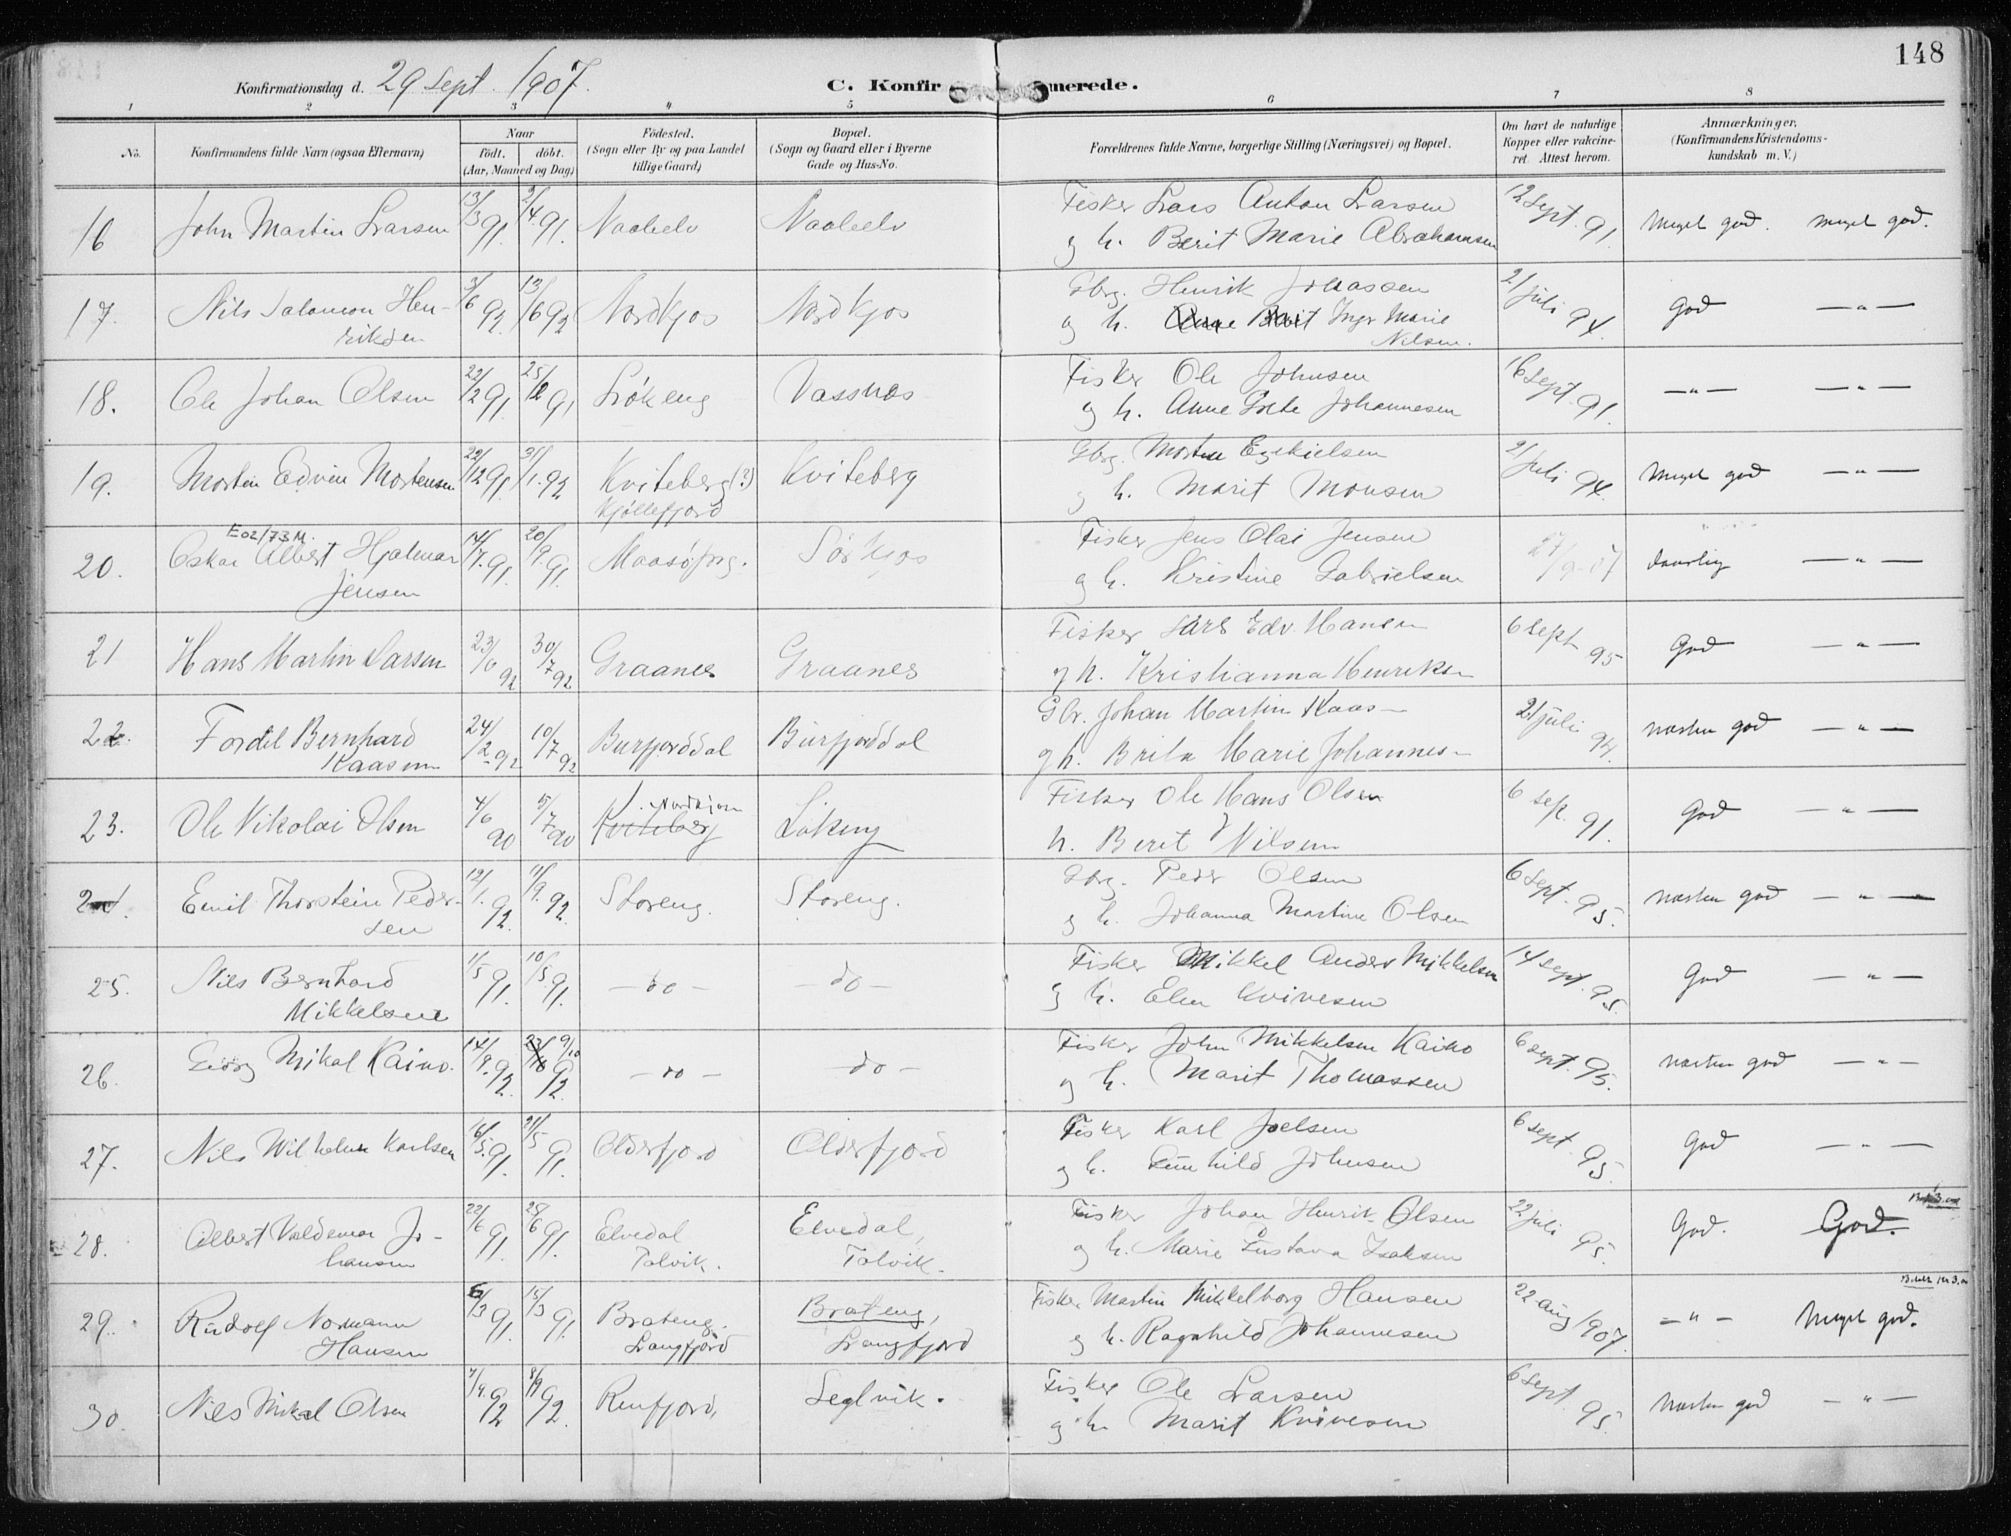 148
Konfirmationsdag d. 29 Sept. 1907. C. Konfir merede.
1 2 3 4 5 6 7 8
No. Konfirmandens fulde Navn (ogsaa Efternavn) Naar födt. döbt. (Aar, Maaned og Dag) Födested. (Sogn eller By og paa Landet tillige Gaard) Bopæl. (Sogn og Gaard eller i Byerne Gade og Hus-No. Forældrenes fulde Navne, borgerlige Stilling (Næringsvei) og Bopæl. Om havt de naturlige Kopper eller vakcineret. Attest herom. Anmærkninger. (Konfirmandens Kristendomskundskab m. V.)
16 John Martin Larsen 13/3 91. 2/4 91. Naaleelv Naaleelv Fisker Lars Anton Larsen 12 Sept. 91. Meget god. Meget god.
og h. Berit Marie Abrahamsen
17. Nils Salomon Hen- 3/6 92. 13/6 92 Nordkjos Nordkjos Gbrg. Henrik Johassen 21 juli 94. God — " —
riksen og h. Inger Marie
Nilsen.
18. Ole Johan Olsen 22/12 91. 25/12 91 Lökeng Vassnæs Fisker Ole Johnsen 16 Sept. 91. — " — — " —
og h. Anne Grete Johannesen
19. Morten Edvin Mortensen 22/12 91 31/1. 92 Kviteberg (?) Kviteberg Gbrg. Morten Ezekielsen 21 Juli 94. Meget god — " —
Kjöllefjord og h. Marit Monsen
E02/73 M.
20. Oskar Albert Hjalmar 14/7. 91. 20/9. 91. Maasö prg. Sörkjos Fisker Jens Olai Jensen 27/9-07 daarlig — " —
Jensen og h. Kristine Gabrielsen
21 Hans Martin Larsen 23/6 92 30/7 92 Graanes Graanes Fisker Lars Edv. Hansen 6 sept 95 God — " —
og h. Kristianna Henriksen
22. Fordel Bernhard 24/2-92 10/7 92 Burfjorddal Burfjorddal Gbr. Johan Martin Kaas- 21 juli 94. næsten god — " —
Kaasen og h. Brita Marie Johannes-
23. Ole Nikolai Olsen 4/6 90 15/7 90 Kviteberg Nordkjos Lökeng Fisker Ole Hans Olsen 6 sep. 91. God — " —
h. Berit Nilsen
24. Emil Thorstein Peder- 12/1. 92. 11/9. 92. Storeng. Storeng. Gbrg. Peder Olsen 6 Sept. 95. næsten god — " —
sen og h. Johanna Martine Olsen
25. Nils Bernhard 11/5 91. 10/5 91. — do — — do — Fisker Mikkel Anders Mikkelsen 14 sept. 95. God — " —
Mikkelsen og h. Elen Kvivesen
26. Georg Mikal Kaino. 14/9. 92. 9/10 92. — do — — do — Fisker John Mikkelsen Kaino 6 sept. 95. næsten god — " —
og h. Marit Thomassen
27. Nils Wilhelm Karlsen 16/5. 91. 21/5 91. Olderfjord Olderfjord Fisker Karl Joelsen 6 sept. 95. God — " —
og h. Gunhild Johnsen
28. Albert Valdemar Jo- 22/6 91. 28/6 91. Elvedal Elvedal, Fisker Johan Henrik Olsen 22 juli 95. God. God.
hansen Talvik. Talvik. og h. Marie Gustava Isaksen
29. Rudolf Normann 6/3 91. 15/3 91. Brateng. Brateng, Fisker Martin Mikkelborg Hansen 22 aug 1907. — " — Meget god.
Hansen Langfjord Langfjord og h. Ragnhild Johannesen
30. Nils Mikal Olsen 7/9. 92 92. Reinfjord, Seglvik. Fisker Ole Larsen 6 Sept. 95. Næsten god — " —
og h. Marit Kvivesen